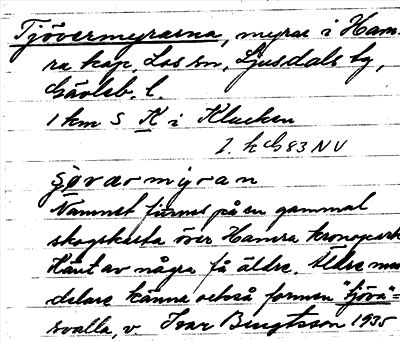 Tjövermyrarna, myrar i Ham-
ra kap Los sn, Ljusdals tg,
Gävleb. l.
1 km S K i Klucken
1. k G 83 NV
şövarmyran
Namnet finnes på en gammal
skogskarta över Hamra kronopark
Känt av några få äldre. Äldre med-
delare känna också formen "Tjöva"=
svalla, v. Ivar Bengtsson 1935